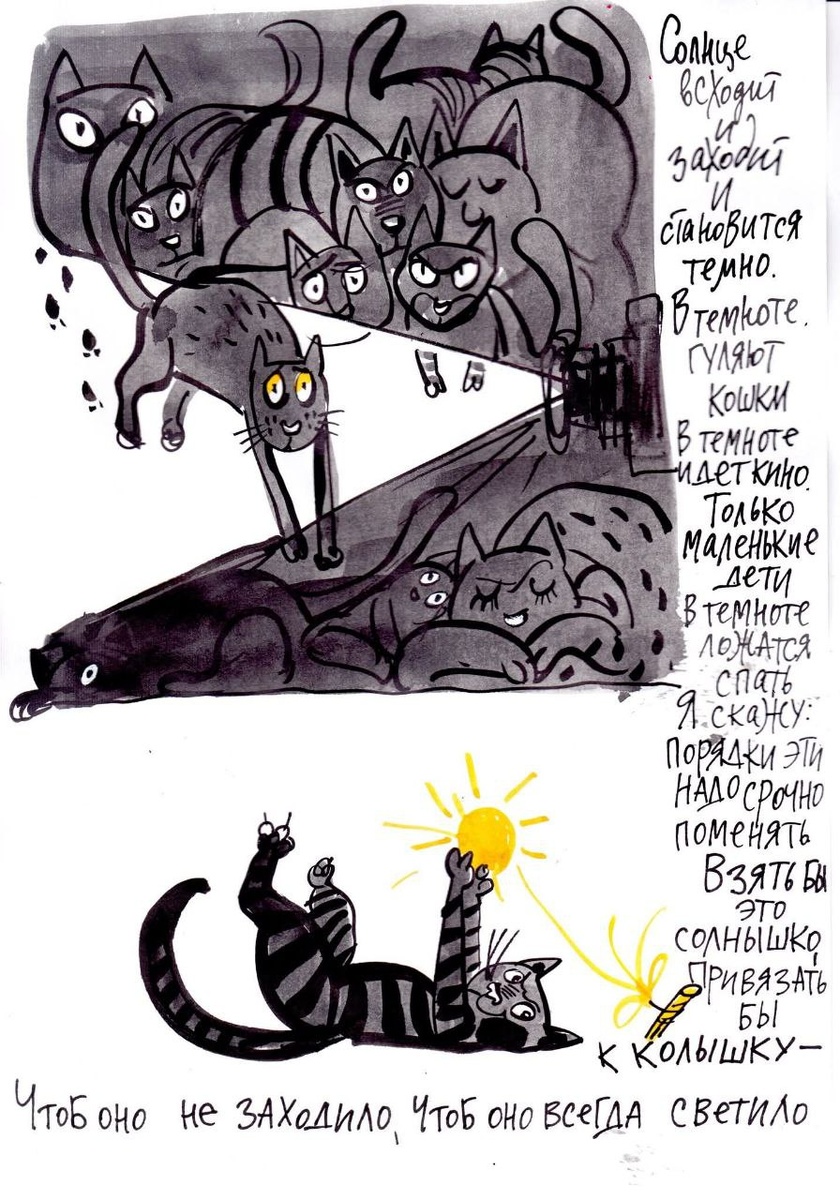 Солнце
всходит
и
заходит
и
становится
темно.
В темноте.
гуляют
кошки
В темноте
идет кино.
Только
маленькие
дети
В темноте
ложатся
спать
Я скажу:
порядки эти
надо срочно
поменять
Взять бы
это
солнышко,
Привязать
бы
к колышку—
Чтоб оно не заходило, Чтоб оно всегда светило